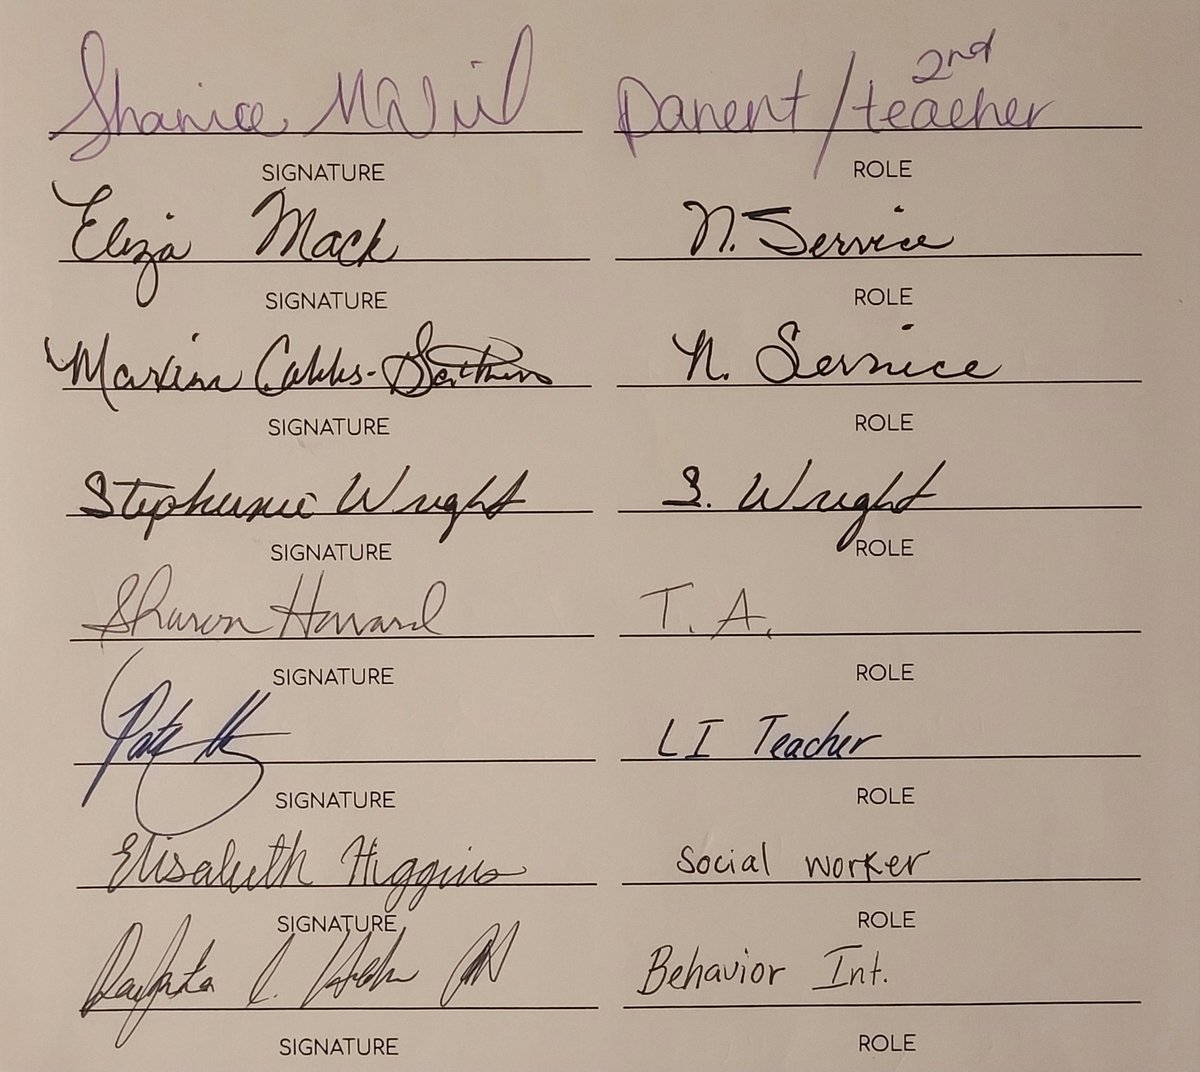 Shanice McNeil Parent/2nd teacher
SIGNATURE ROLE
Eliza Mack N. Service
SIGNATURE ROLE
Cobbs- N. Service
SIGNATURE ROLE
Stephanie Wright S. Wright
SIGNATURE ROLE
Sharon Howard T. A.
SIGNATURE ROLE
LI Teacher
SIGNATURE ROLE
Elisabeth Higgins Social worker
SIGNATURE ROLE
Behavior Int.
SIGNATURE ROLE